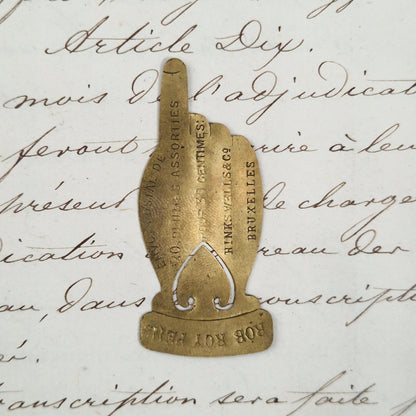 Article Dix.
mois de l'adjudicat
feront à leu
présent charge
au der
au, dans conscription
re.
transcription sera faite
ENVOI DE
40 PLUMES ASSORTIES
POUR 30 CENTIMES:
HINKS WELLS & Co
BRUXELLES
ROB ROY PENS